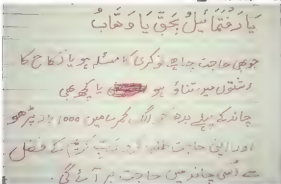 یَا رَفْتَمَائِیلُ بِحَقِّ یَا وَھَّابُ
جو بھی حاجت چاہے نوکری کا مسئلہ ہو یا نکاح کا
رشتوں میں تناؤ ہو یا کچھ بھی
چاند کے پہلے بدھ کو الگ کمرے میں 1000 بار پڑھو
اور اپنی حاجت رب کریم کے فضل
سے اُسی چاند میں حاجت بر آئے گی۔